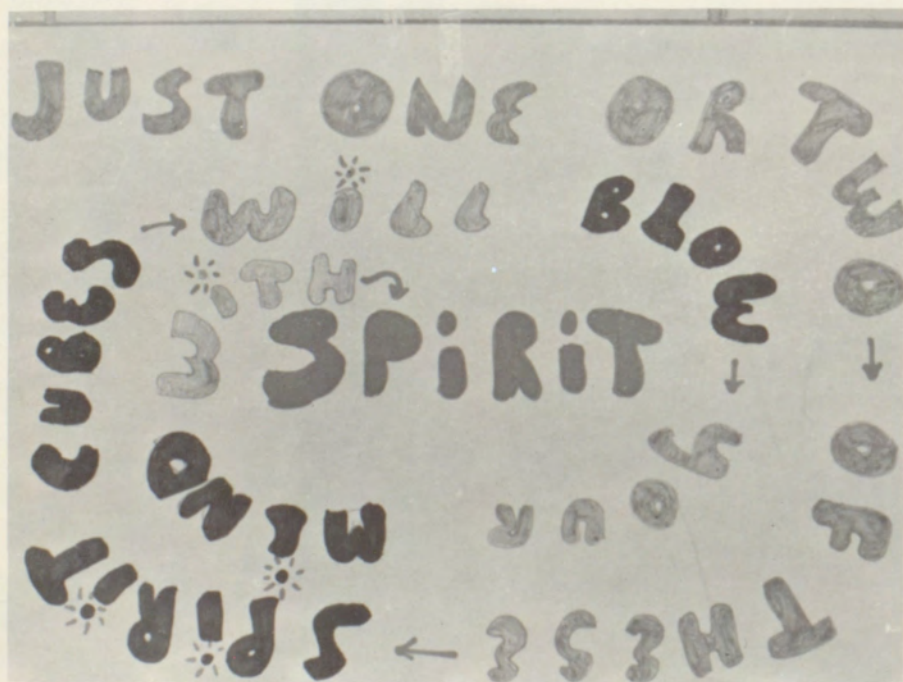 JUST ONE OR TWO
OF
THESE
SPIRIT
CUBES
WILL BLOW
YOUR
MIND
WITH
SPIRIT